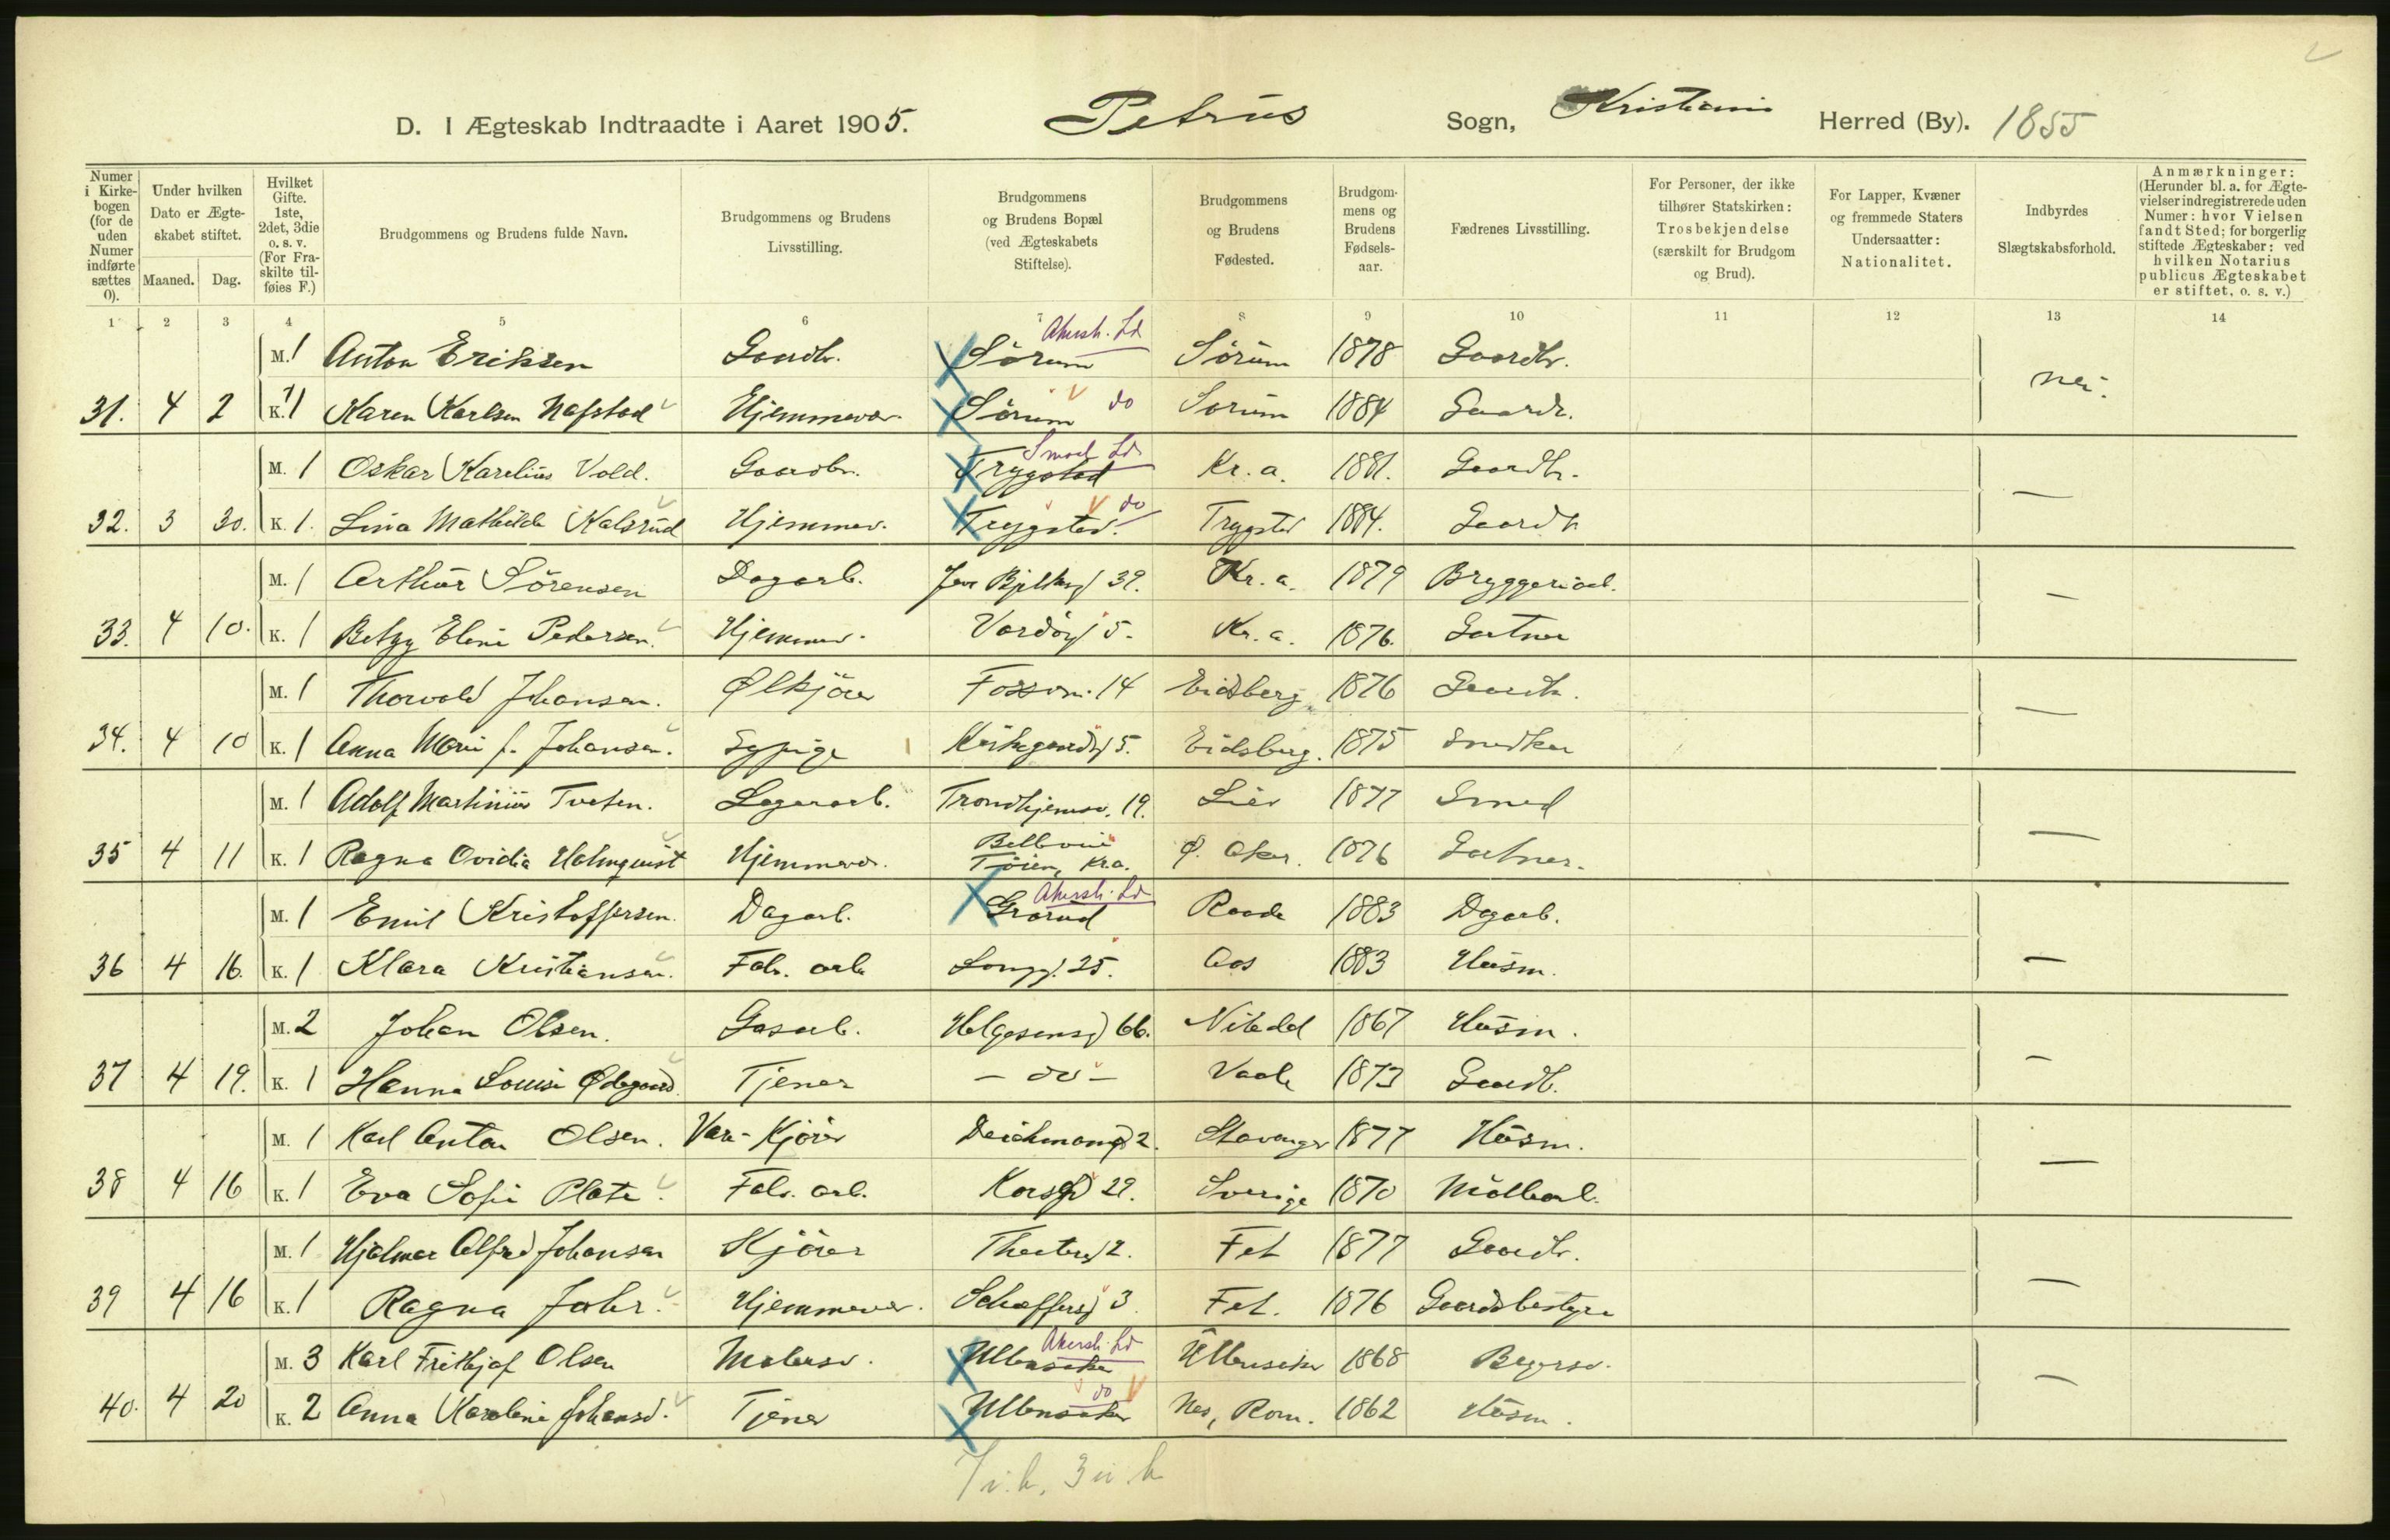 D. I Ægteskab Indtraadte i Aaret 1905. Petrus Sogn, Kristiania Herred (By). 1855
Numer i Kirkebogen (for de uden Numer indførte sættes 0).
Under hvilken Dato er Ægteskabet stiftet.
Maaned. Dag.
Hvilket Gifte. 1ste, 2det, 3die o. s. v. (For Fraskilte tilføies F.)
Brudgommens og Brudens fulde Navn.
Brudgommens og Brudens Livsstilling.
Brudgommens og Brudens Bopæl (ved Ægteskabets Stiftelse).
Brudgommens og Brudens Fødested.
Brudgommens og Brudens Fødselsaar.
Fædrenes Livsstilling.
For Personer, der ikke tilhører Statskirken: Trosbekjendelse (særskilt for Brudgom og Brud).
For Lapper, Kvæner og fremmede Staters Undersaatter: Nationalitet.
Indbyrdes Slægtskabsforhold.
Anmærkninger: (Herunder bl. a. for Ægtevielser indregistrerede uden Numer: hvor Vielsen fandt Sted; for borgerlig stiftede Ægteskaber: ved hvilken Notarius publicus Ægteskabet er stiftet, o. s. v.)
1 2 3 4 5 6 7 8 9 10 11 12 13 14
Akersh. Ld
M. 1 Anton Eriksen Gaardbr. Sörum Sörum 1878 Gaardbr.
31. 4 2 K. 1 Karen Karlsen Nafstad Hjemmevær. Sörum do Sorum 1884 Gaardbr. nei.
Smaal Ld.
M. 1 Oskar Karelius Vold. Gaardbr. Trygstad Kr. a. 1881. Gaardbr.
32. 3 30. K. 1. Lina Mathilde Kalsrud Hjemmev. Trygstad. do Trygstad 1884. Gaardbr —
M. 1 Arthur Sörensen Dagarb. Jens Bjelkesg 39. Kr. a. 1879 Bryggeriarb.
33. 4 10. K. 1 Betzy Eline Pedersen. Hjemmev. Vardög 5. Kr. a. 1876. Gartner —
M. 1 Thorvald Johansen. Ølkjörer Fossv. 14 Eidsberg 1876 Gaardbr.
34. 4 10 K. 1 Anna Marie f. Johansen. Sypige Kirkegaardsg 5. Eidsberg. 1875 Snedker —
M. 1 Adolf Martinius Tveten. Lagerarb. Trondhjemsv. 19. Lier 1877 Smed
35 4 11 K. 1 Ragna Ovidia Holmquist Hjemmevær. Bellevue Töien, Kra. Ø. Aker. 1876 Gartner. —
Akersh. Ld
M. 1 Emil Kristoffersen. Dagarb. Grorud Raade 1883 Dagarb.
36 4 16. K. 1 Klara Kristiansen. Fabr. arb. Langg. 25. Aas 1883 Husm. —
M. 2 Johan Olsen. Gasarb. Helgesensg 66. Nitedal 1867 Husm.
37 4 19. K. 1 Hanna Louise Ødegaard. Tjener — do — Vaale 1873 Gaardb. —
M. 1 Karl Anton Olsen. Vare-Kjörer Deichmansg 2. Stavanger 1877 Husm.
38 4 16 K. 1 Eva Sofie Plate. Fabr. arb. Korsgd 29. Sverige 1870 Möllearb. —
M. 1 Hjalmar Alfred Johansen Kjörer Theaterg 2. Fet 1877 Gaardbr.
39 4 16 K. 1 Ragna Johr. Hjemmevær. Schäffersg 3. Fet. 1876 Gaardsbestyrer —
Akersh. Ld
M. 3 Karl Frithjof Olsen Malersv. Ullensaker Ullensaker 1868 Bagersv.
40. 4 20 K. 2 Anna Karoline Johansd. Tjener Ullensaker do Nes, Rom. 1862 Husm. —
7 i. b. 3 u. b